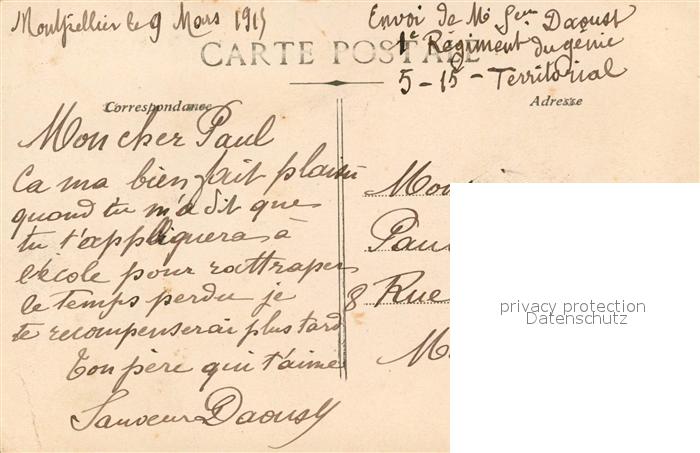 Montpellier le 9 Mars 1915
Envoi de Mr Daoust
1e Régiment du génie
5 - 15 - Territorial
CARTE POSTALE
Correspondance
Adresse
Mon cher Paul
Ca ma bien fait plaisir
quand tu m'a dit que
tu t'appliqueras à
l'école pour rattraper
le temps perdu je
te recompenserai plus tard
Ton père qui t'aime
Sauveur Daoust
Paul
8 Rue
privacy protection
Datenschutz